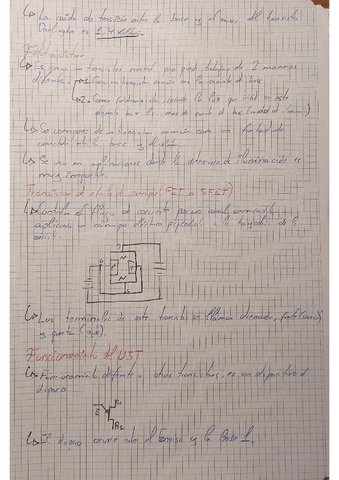 La caída de tensión entre la base y el emisor del transistor
Darlington es 1,4 Voltios.
Fototransistor
Es como un transistor normal pero puede trabajar de 2 maneras
diferentes: 1. Como un transistor común con la corriente de base
2. Como fototransistor, cuando la luz que incide en este
elemento hace las veces de corriente de base
Se compone de un transistor común con un
conectado entre la base y el
Se usa en aplicaciones donde la detección de iluminación es
muy importante.
Transistor de efecto de campo (FET o JFET)
Controla el flujo de corriente por un canal semiconductor,
aplicando un campo eléctrico perpendicular a la trayectoria de la
corriente.
Los terminales de este transistor se llaman drenador, fuente
y puerta (gate).
Funcionamiento del UJT
Funcionamiento diferente a otros transistores, es un dispositivo de
disparo
E
El disparo ocurre entre el Emisor y la Base 1.